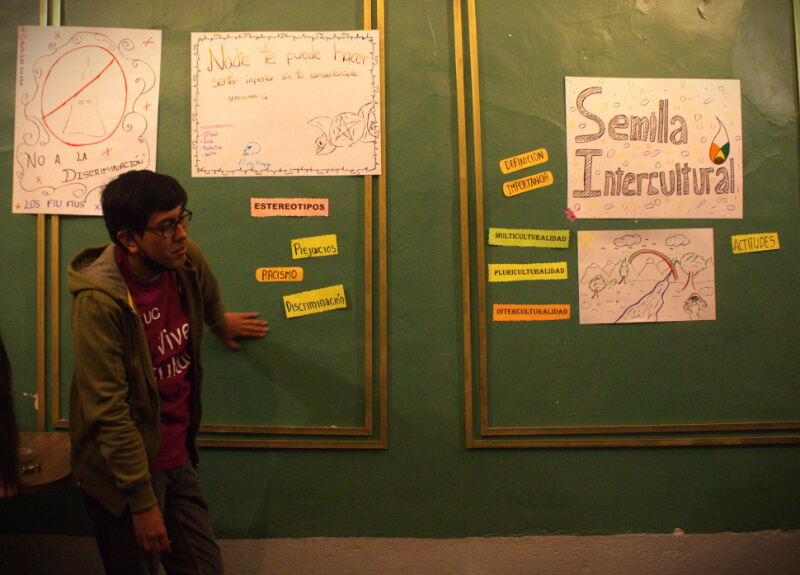 NO A LA
DISCRIMINACIÓN
LOS FIU FIUS
Nadie te puede hacer
sentir inferior sin tu consentimiento
ESTEREOTIPOS
PREJUICIOS
RACISMO
DISCRIMINACIÓN
UC
DEFINICIÓN
IMPORTANCIA
MULTICULTURALIDAD
PLURICULTURALIDAD
INTERCULTURALIDAD
Semilla
Intercultural
ACTITUDES